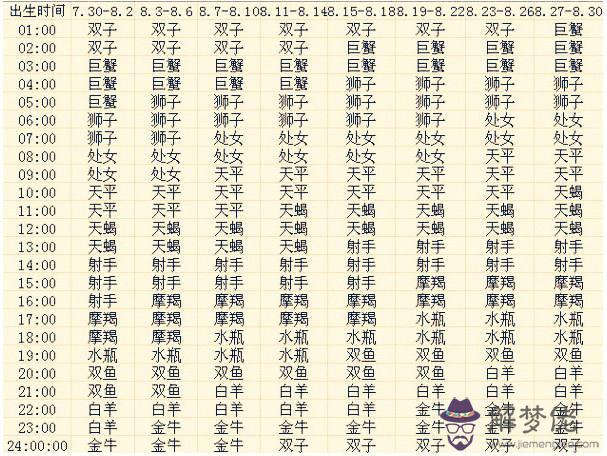 出生时间 7.30-8.2 8.3-8.6 8.7-8.10 8.11-8.14 8.15-8.18 8.19-8.22 8.23-8.26 8.27-8.30
01:00 双子 双子 双子 双子 双子 双子 双子 巨蟹
02:00 双子 双子 双子 双子 巨蟹 巨蟹 巨蟹 巨蟹
03:00 巨蟹 巨蟹 巨蟹 巨蟹 巨蟹 巨蟹 巨蟹 巨蟹
04:00 巨蟹 巨蟹 巨蟹 巨蟹 狮子 狮子 狮子 狮子
05:00 巨蟹 狮子 狮子 狮子 狮子 狮子 狮子 狮子
06:00 狮子 狮子 狮子 狮子 狮子 狮子 处女 处女
07:00 狮子 狮子 处女 处女 处女 处女 处女 处女
08:00 处女 处女 处女 处女 处女 处女 天平 天平
09:00 处女 处女 天平 天平 天平 天平 天平 天平
10:00 天平 天平 天平 天平 天平 天平 天平 天蝎
11:00 天平 天平 天平 天蝎 天蝎 天蝎 天蝎 天蝎
12:00 天蝎 天蝎 天蝎 天蝎 天蝎 天蝎 天蝎 天蝎
13:00 天蝎 天蝎 天蝎 天蝎 射手 射手 射手 射手
14:00 射手 射手 射手 射手 射手 射手 射手 射手
15:00 射手 射手 射手 射手 射手 摩羯 摩羯 摩羯
16:00 射手 摩羯 摩羯 摩羯 摩羯 摩羯 摩羯 摩羯
17:00 摩羯 摩羯 摩羯 摩羯 摩羯 水瓶 水瓶 水瓶
18:00 摩羯 摩羯 水瓶 水瓶 水瓶 水瓶 水瓶 水瓶
19:00 水瓶 水瓶 水瓶 水瓶 双鱼 双鱼 双鱼 双鱼
20:00 双鱼 双鱼 双鱼 双鱼 双鱼 双鱼 白羊 白羊
21:00 双鱼 双鱼 白羊 白羊 白羊 白羊 白羊 白羊
22:00 白羊 白羊 白羊 白羊 白羊 金牛 金牛 金牛
23:00 白羊 金牛 金牛 金牛 金牛 金牛 金牛
24:00:00 金牛 金牛 金牛 双子 双子 双子 双子 双子
解梦佬
www.jiemenglao.com